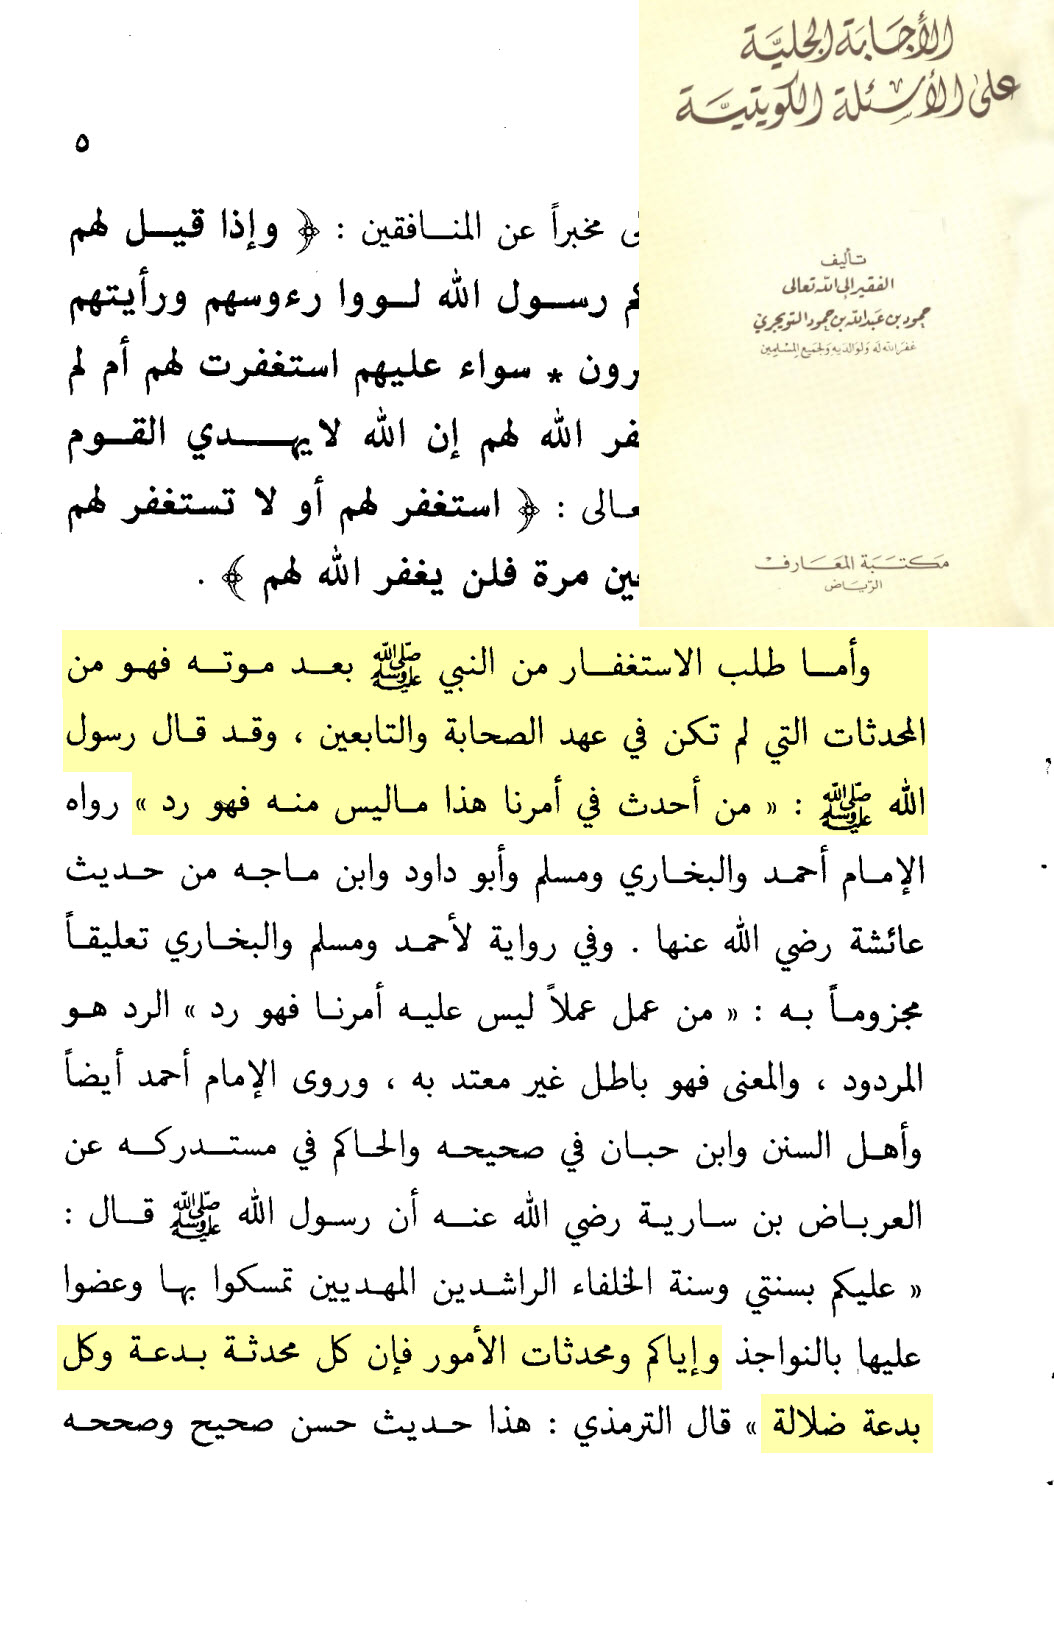 الأجابة الجلية
على الأسئلة الكويتية
تأليف
الفقير إلى الله تعالى
حمود بن عبد الله بن حمود التويجري
غفر الله له ولوالديه ولجميع المسلمين
مكتبة المعارف
الرياض
٥
مخبراً عن المنافقين : ﴿ وإذا قيل لهم
رسول الله لووا رءوسهم ورأيتهم
رون * سواء عليهم استغفرت لهم أم لم
فر الله لهم إن الله لايهدي القوم
عالى : ﴿ استغفر لهم أو لا تستغفر لهم
عين مرة فلن يغفر الله لهم ﴾ .
وأما طلب الاستغفار من النبي ﷺ بعد موته فهو من
المحدثات التي لم تكن في عهد الصحابة والتابعين ، وقد قال رسول
الله ﷺ : « من أحدث في أمرنا هذا ماليس منه فهو رد » رواه
الإمام أحمد والبخاري ومسلم وأبو داود وابن ماجه من حديث
عائشة رضي الله عنها . وفي رواية لأحمد ومسلم والبخاري تعليقاً
مجزوماً به : « من عمل عملاً ليس عليه أمرنا فهو رد » الرد هو
المردود ، والمعنى فهو باطل غير معتد به ، وروى الإمام أحمد أيضاً
وأهل السنن وابن حبان في صحيحه والحاكم في مستدركه عن
العرباض بن سارية رضي الله عنه أن رسول الله ﷺ قال :
« عليكم بسنتي وسنة الخلفاء الراشدين المهديين تمسكوا بها وعضوا
عليها بالنواجذ وإياكم ومحدثات الأمور فإن كل محدثة بدعة وكل
بدعة ضلالة » قال الترمذي : هذا حديث حسن صحيح وصححه